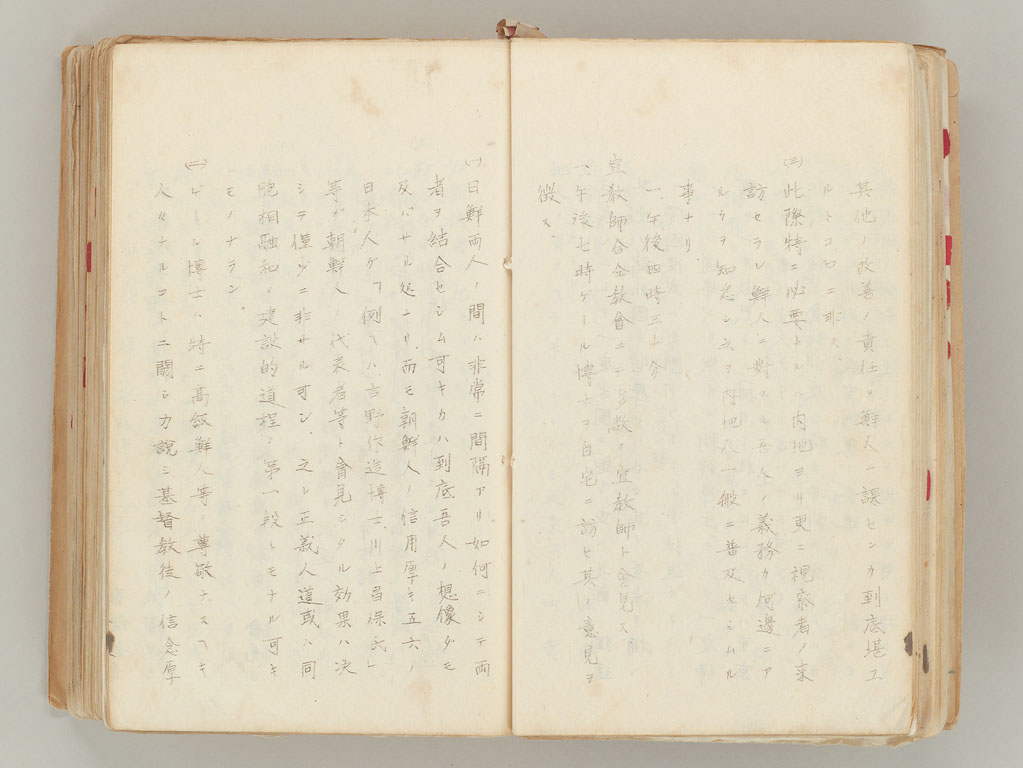 其他ノ改善ノ責任ヲ鮮人ニ課センカ到底堪ユ
ルトコロニ非ス、
(三)此際特ニ必要トスルハ内地ヨリ更ニ視察者ノ来
訪セラレ鮮人ニ対スル吾人ノ義務カ何辺ニア
ルヤヲ知悉シ之ヲ内地人一般ニ普及セシムル
事ナリ、
一、午後四時三十分
宣教師合全教会ニテ多数ノ宣教師ト会見ス
一、午後七時ゲール博士ヲ自宅ニ訪ヒ其ノ意見ヲ
徴ス
(一)日鮮両人ノ間ハ非常ニ間隔アリ如何ニシテ両
者ヲ結合セシム可キカハ到底吾人ノ想像ダモ
及バザル処ナリ而モ朝鮮人ノ信用厚キ五六ノ
日本人ガ「例ヘバ吉野作造博士、川上昌保氏」
等ガ朝鮮人ノ代表者等ト会見シタル効果ハ決
シテ僅少ニ非サル可シ、之レ正義人道或ハ同
胞相融和ノ建設的道程ノ第一段トモナル可キ
モノナラン、
(二)ゲール博士ハ特ニ高級鮮人等ノ尊敬ナスヘキ
人々ナルコトニ関シ力説シ基督教徒ノ信念厚